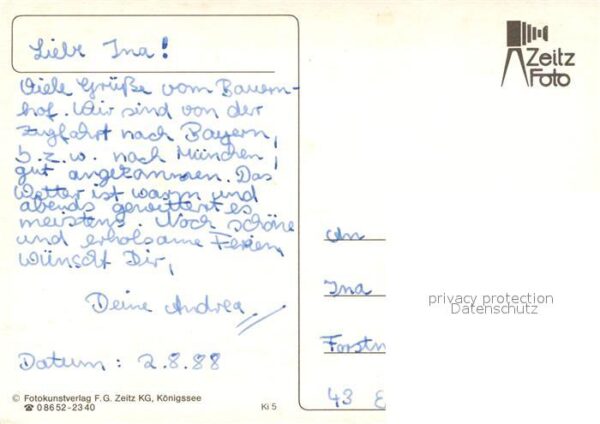 Liebe Ina!
Viele Grüße vom Bauern-
hof. Wir sind von der
Zugfahrt nach Bayern,
b.z.w. nach München,
gut angekommen. Das
Wetter ist warm und
abends gewittert es
meistens. Noch schöne
und erholsame Ferien,
wünscht Dir,
Deine Andrea
Datum: 2.8.88
© Fotokunstverlag F. G. Zeitz KG, Königssee
☎ 0 86 52 - 23 40
Ki 5
Zeitz
Foto
An
Ina
Forstm
43 E
privacy protection
Datenschutz